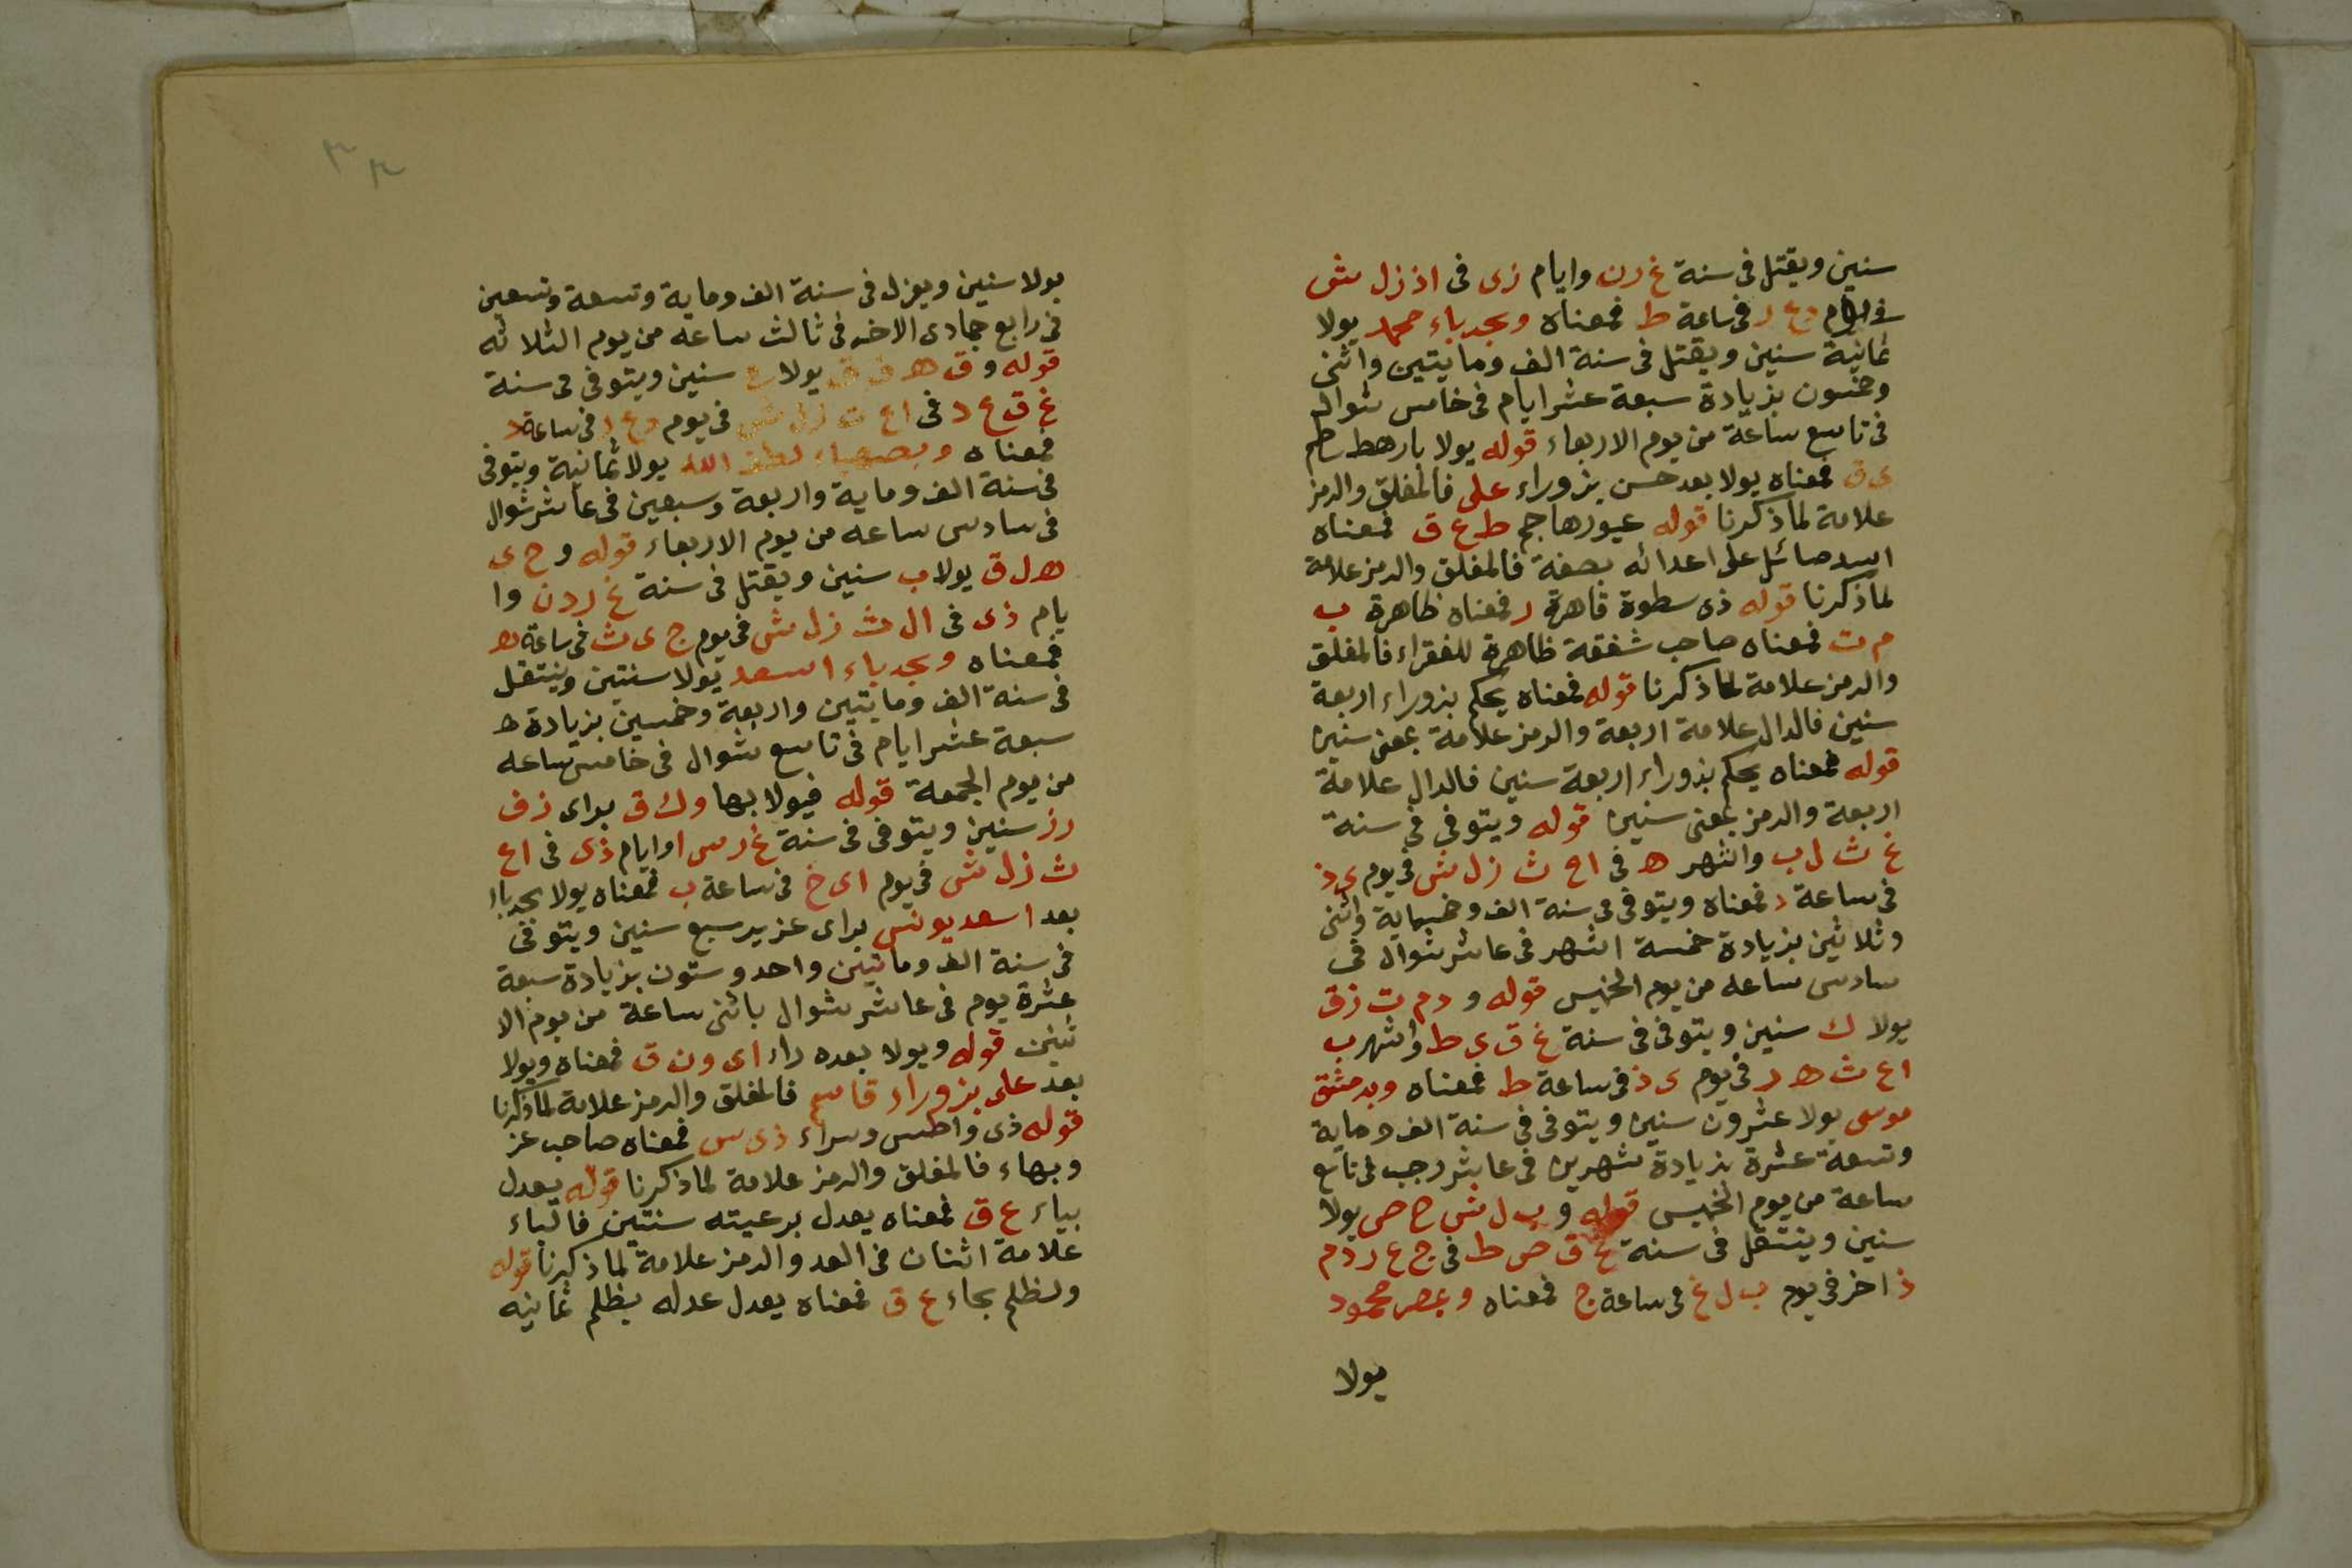 سنين ويقتل فى سنة غ رن وايام زى فى اذ زل ش
فى يوم دع ر فى ساعة ط فمعناه وبجدباء محمد يولا
ثمانية سنين ويقتل فى سنة الف ومايتين واثنى
وخمسون بزيادة سبعة عشر ايام فى خامس شوال
فى تاسع ساعة من يوم الاربعاء قوله يولا بارهط
ى ق فمعناه يولا بعد حسن بزوراء على فالمغلق والرمز
علامة لما ذكرنا قوله عيورهاجم ط ع ق فمعناه
اسد صائل على اعدائه بصفة فالمغلق والرمز علامة
لما ذكرنا قوله ذى سطوة قاهرة ر فمعناه ظاهرة ب
م ت فمعناه صاحب شفقة ظاهرة للفقراء فالمغلق
والرمز علامة لما ذكرنا قوله فمعناه يحكم بزوراء اربعة
سنين فالدال علامة اربعة والرمز علامة بمعنى سنين
قوله فمعناه يحكم بزوراء اربعة سنين فالدال علامة
اربعة والرمز بمعنى سنين قوله ويتوفى فى سنة
غ ث ل ب واشهر ه فى اع ث زل ش فى يوم ى ذ
فى ساعة د فمعناه ويتوفى فى سنة الف وخمسماية واثنى
وثلاثين بزيادة خمسة اشهر فى عاشر شوال فى
سادس ساعه من يوم الخميس قوله و دم ت زق
يولا ك سنين ويتوفى فى سنة غ ق ى ط واشهر ب
اع ث ه ر فى يوم ى ذ فى ساعة ط فمعناه وبدمشق
موسى يولا عشرون سنين ويتوفى فى سنة الف وماية
وتسعة عشرة بزيادة شهرين فى عاشر رجب فى تاسع
ساعة من يوم الخميس قوله و ب ل ش ح ص يولا
سنين وينتقل فى سنة غ ق ص ط فى ج ع ر دم
ذ اخر فى يوم ب ل غ فى ساعة ج فمعناه وبمصر محمود
يولا
يولا سنين ويعزل فى سنة الف وماية وتسعة وتسعين
فى رابع جمادى الاخر فى ثالث ساعه من يوم الثلاثه
قوله و ق ه ف ق يولا ع سنين ويتوفى فى سنة
غ ق ع د فى اع ث زل ش فى يوم دع ر فى ساعة د
فمعناه وبصهباء لطف الله يولا ثمانية ويتوفى
فى سنة الف وماية واربعة وسبعين فى عاشر شوال
فى سادس ساعه من يوم الاربعاء قوله و ح ى
ه ل ق يولا ب سنين ويقتل فى سنة غ ر د ن وا
يام ذى فى ال ث زل ش فى يوم ج ى ث فى ساعة ه
فمعناه وبجدباء اسعد يولا سنتين وينتقل
فى سنة الف ومايتين واربعة وخمسين بزيادة ه
سبعة عشر ايام فى تاسع شوال فى خامس ساعه
من يوم الجمعة قوله فيولا بها وك ق براى زف
رز سنين ويتوفى فى سنة غ ر س ا وايام ذى فى اع
ث زل ش فى يوم اى خ فى ساعة ب فمعناه يولا بجدباء
بعد اسعد يونس براى عزيز سبع سنين ويتوفى
فى سنة الف وماتين واحد وستون بزيادة سبعة
عشرة يوم فى عاشر شوال باثنى ساعة من يوم الا
ثنين قوله ويولا بعده راء اى ون ق فمعناه ويولا
بعد على بزوراء قاسم فالمغلق والرمز علامة لما ذكرنا
قوله ذى واطس وسراء ذى س فمعناه صاحب عز
وبهاء فالمغلق والرمز علامة لما ذكرنا قوله يعدل
بباء ع ق فمعناه يعدل برعيته سنتين فالباء
علامة اثنان فى العد والرمز علامة لما ذكرنا قوله
ولظلم بحاء ع ق فمعناه يعدل عدله بظلم ثمانيه